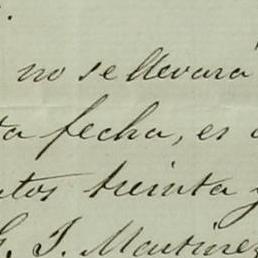 no se llevará
ta fecha, es
ntos treinta y
G. J. Martinez